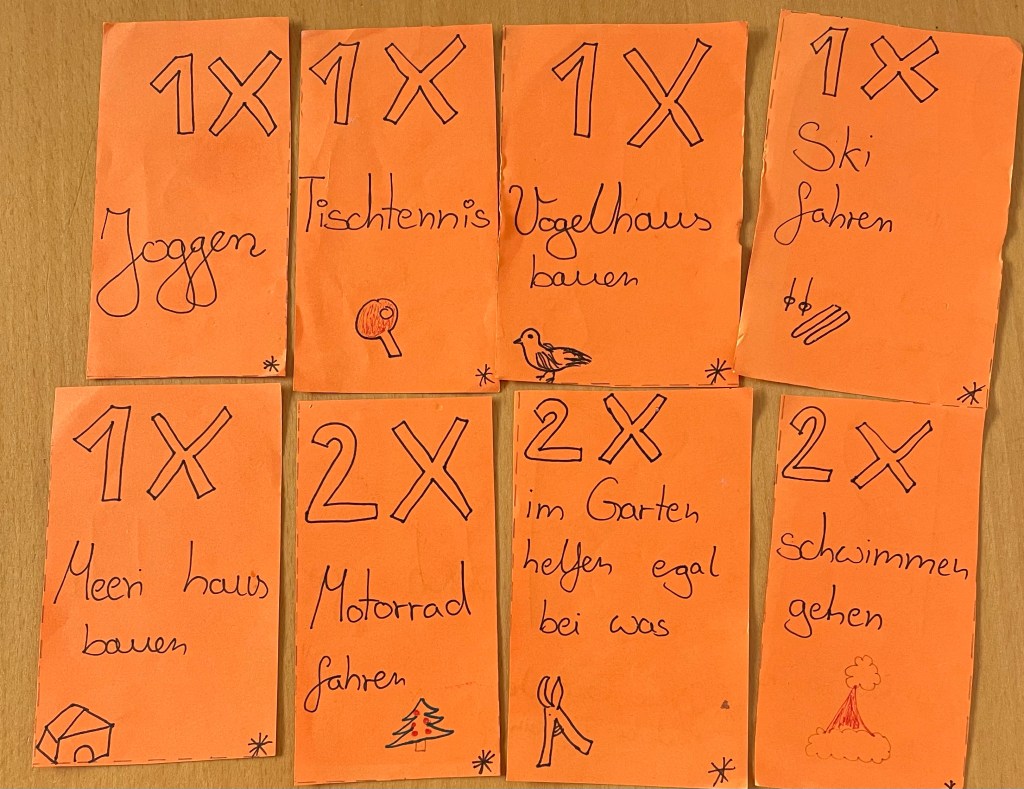 1X
Joggen
1X
Tischtennis
1X
Vogelhaus
bauen
1X
Ski
fahren
1X
Meeri haus
bauen
2X
Motorrad
fahren
2X
im Garten
helfen egal
bei was
2X
schwimmen
gehen